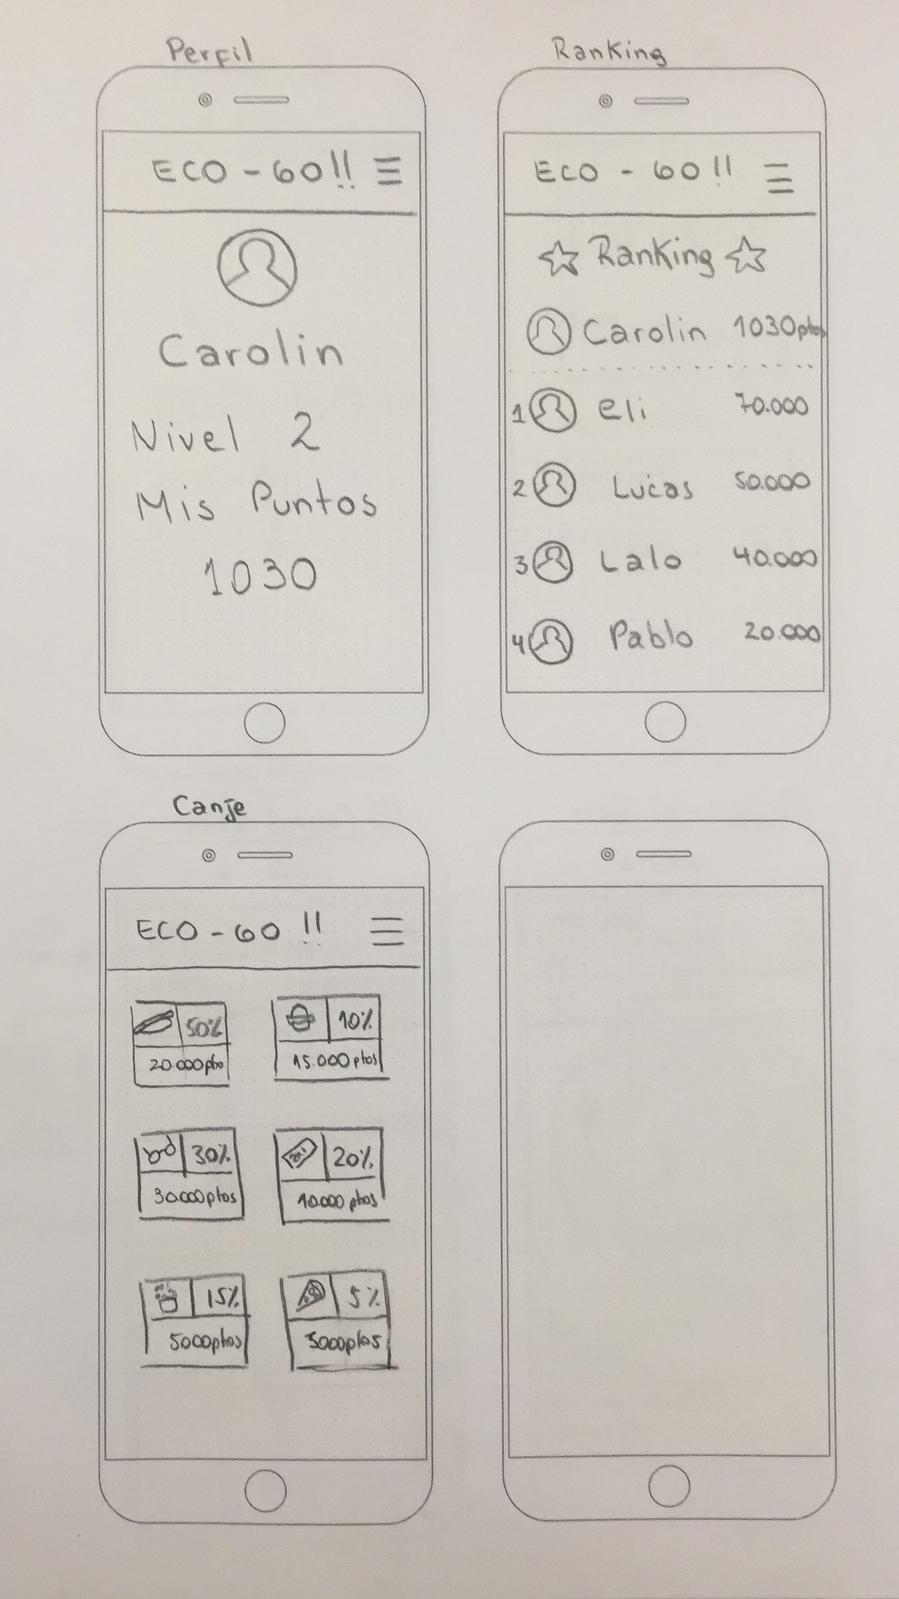 Perfil
ECO - GO!!
Carolin
Nivel 2
Mis Puntos
1030
Ranking
ECO - GO!!
Ranking
Carolin 1030ptos
1 Eli 70.000
2 Lucas 50.000
3 Lalo 40.000
4 Pablo 20.000
Canje
ECO - GO !!
50% 10%
20.000pto 15.000ptos
30% 20%
30.000ptos 10.000ptos
15% 5%
5000ptos 5000ptos